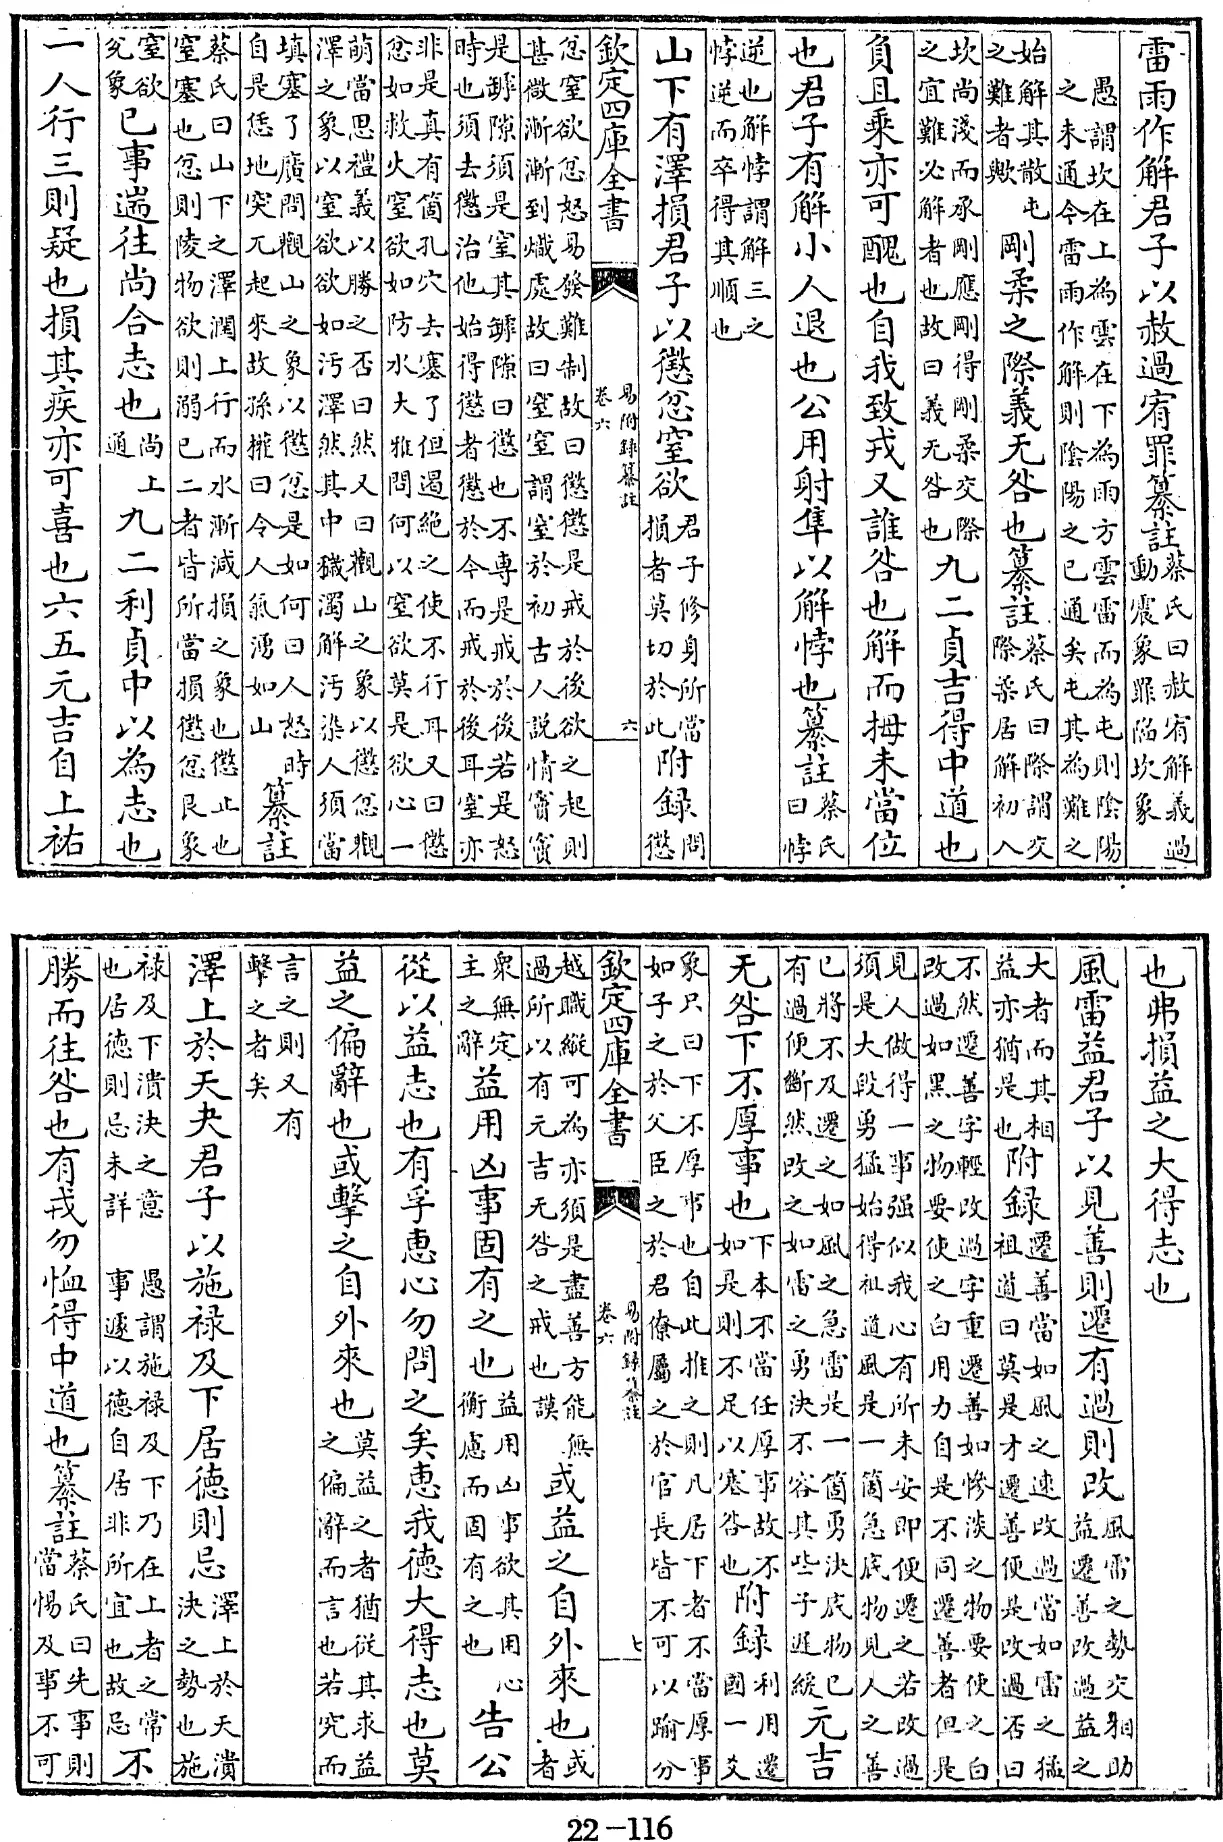 雷雨作解君子以赦過宥罪纂註
蔡氏曰赦宥解義過
動震象罪陷坎象
愚謂坎在上為雲在下為雨方雲雷而為屯則陰陽
之未通今雷雨作解則陰陽之已通矣屯其為難之
始解其散屯
之難者歟
剛柔之際義无咎也纂註
蔡氏曰際謂交
際柔居解初入
坎尚淺而承剛應剛得剛柔交際
之宜難必解者也故曰義无咎也
九二貞吉得中道也
負且乘亦可醜也自我致戎又誰咎也解而拇未當位
也君子有解小人退也公用射隼以解悖也纂註
蔡氏
曰悖
逆也解悖謂解三之
悖逆而卒得其順也
山下有澤損君子以懲忿窒欲
君子修身所當
損者莫切於此
附録
問
懲
欽定四庫全書
易附録纂註
卷六
六
忿窒欲忿怒易發難制故曰懲懲是戒於後欲之起則
甚微漸漸到熾處故曰窒窒謂窒於初古人説情竇竇
是罅隙須是窒其罅隙曰懲也不専是戒於後若是怒
時也須去懲治他始得懲者懲於今而戒於後耳窒亦
非是真有箇孔穴去塞了但遏絶之使不行耳又曰懲
忿如救火窒欲如防水大雅問何以窒欲莫是欲心一
萌當思禮義以勝之否曰然又曰觀山之象以懲忿觀
澤之象以窒欲欲如汚澤然其中穢濁解汚染人須當
填塞了廣問觀山之象以懲忿是如何曰人怒時
自是恁地突兀起來故孫權曰令人氣湧如山
纂註
蔡氏曰山下之澤潤上行而水漸減損之象也懲止也
窒塞也忿則陵物欲則溺已二者皆所當損懲忿艮象
窒欲
兊象
已事遄往尚合志也
尚上
通
九二利貞中以為志也
一人行三則疑也損其疾亦可喜也六五元吉自上祐
也弗損益之大得志也
風雷益君子以見善則遷有過則改
風雷之勢交相助
益遷善改過益之
大者而其相
益亦猶是也
附録
遷善當如風之速改過當如雷之猛
祖道曰莫是才遷善便是改過否曰
不然遷善字輕改過字重遷善如慘淡之物要使之白
改過如黑之物要使之白用力自是不同遷善者但是
見人做得一事强似我心有所未安即便遷之若改過
須是大段勇猛始得祖道風是一箇急底物見人之善
已將不及遷之如風之急雷是一箇勇決底物已
有過便斷然改之如雷之勇決不容其些子遲緩
元吉
无咎下不厚事也
下本不當任厚事故不
如是則不足以塞咎也
附録
利用遷
國一爻
象只曰下不厚事也自此推之則凡居下者不當厚事
如子之於父臣之於君僚屬之於官長皆不可以踰分
欽定四庫全書
易附録纂註
卷六
七
越職縱可為亦須是盡善方能無
過所以有元吉无咎之戒也謨
或益之自外來也
或
者
衆無定
主之辭
益用凶事固有之也
益用凶事欲其困心
衡慮而固有之也
告公
從以益志也有孚惠心勿問之矣惠我德大得志也莫
益之偏辭也或擊之自外來也
莫益之者猶從其求益
之偏辭而言也若究而
言之則又有
擊之者矣
澤上於天夬君子以施禄及下居德則忌
澤上於天潰
決之勢也施
禄及下潰決之意
也居德則忌未詳
愚謂施禄及下乃在上者之常
事遽以德自居非所宜也故忌
不
勝而往咎也有戎勿恤得中道也纂註
蔡氏曰先事則
當惕及事不可
22-116